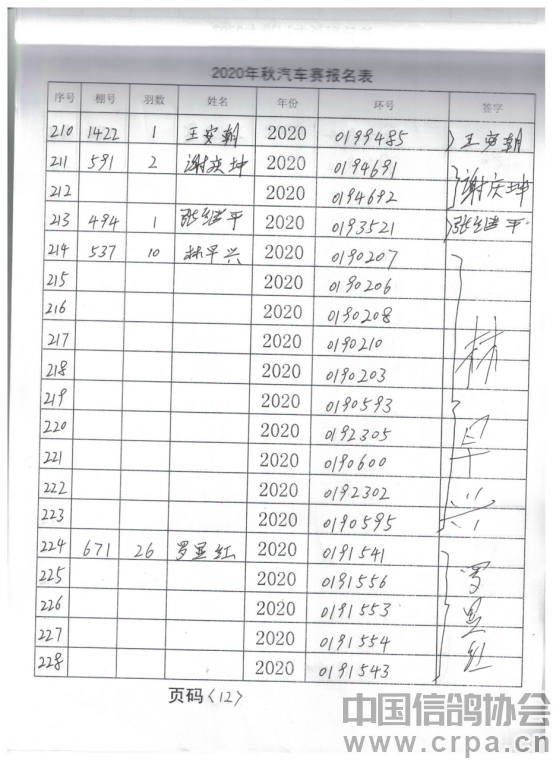 2020年秋汽车赛报名表
序号 棚号 羽数 姓名 年份 环号 签字
210 1422 1 王安朝 2020 0199485 王安朝
211 591 2 谢庆坤 2020 0194691 谢庆坤
212 2020 0194692
213 494 1 张继平 2020 0193521 张继平
214 537 10 林早兴 2020 0190207 林早兴
215 2020 0190206
216 2020 0190208
217 2020 0190210
218 2020 0190203
219 2020 0190593
220 2020 0192305
221 2020 0190600
222 2020 0192302
223 2020 0190595
224 671 26 罗显红 2020 0191541 罗显红
225 2020 0191556
226 2020 0191553
227 2020 0191554
228 2020 0191543
页码〈12〉
中国信鸽协会
www.crpa.cn